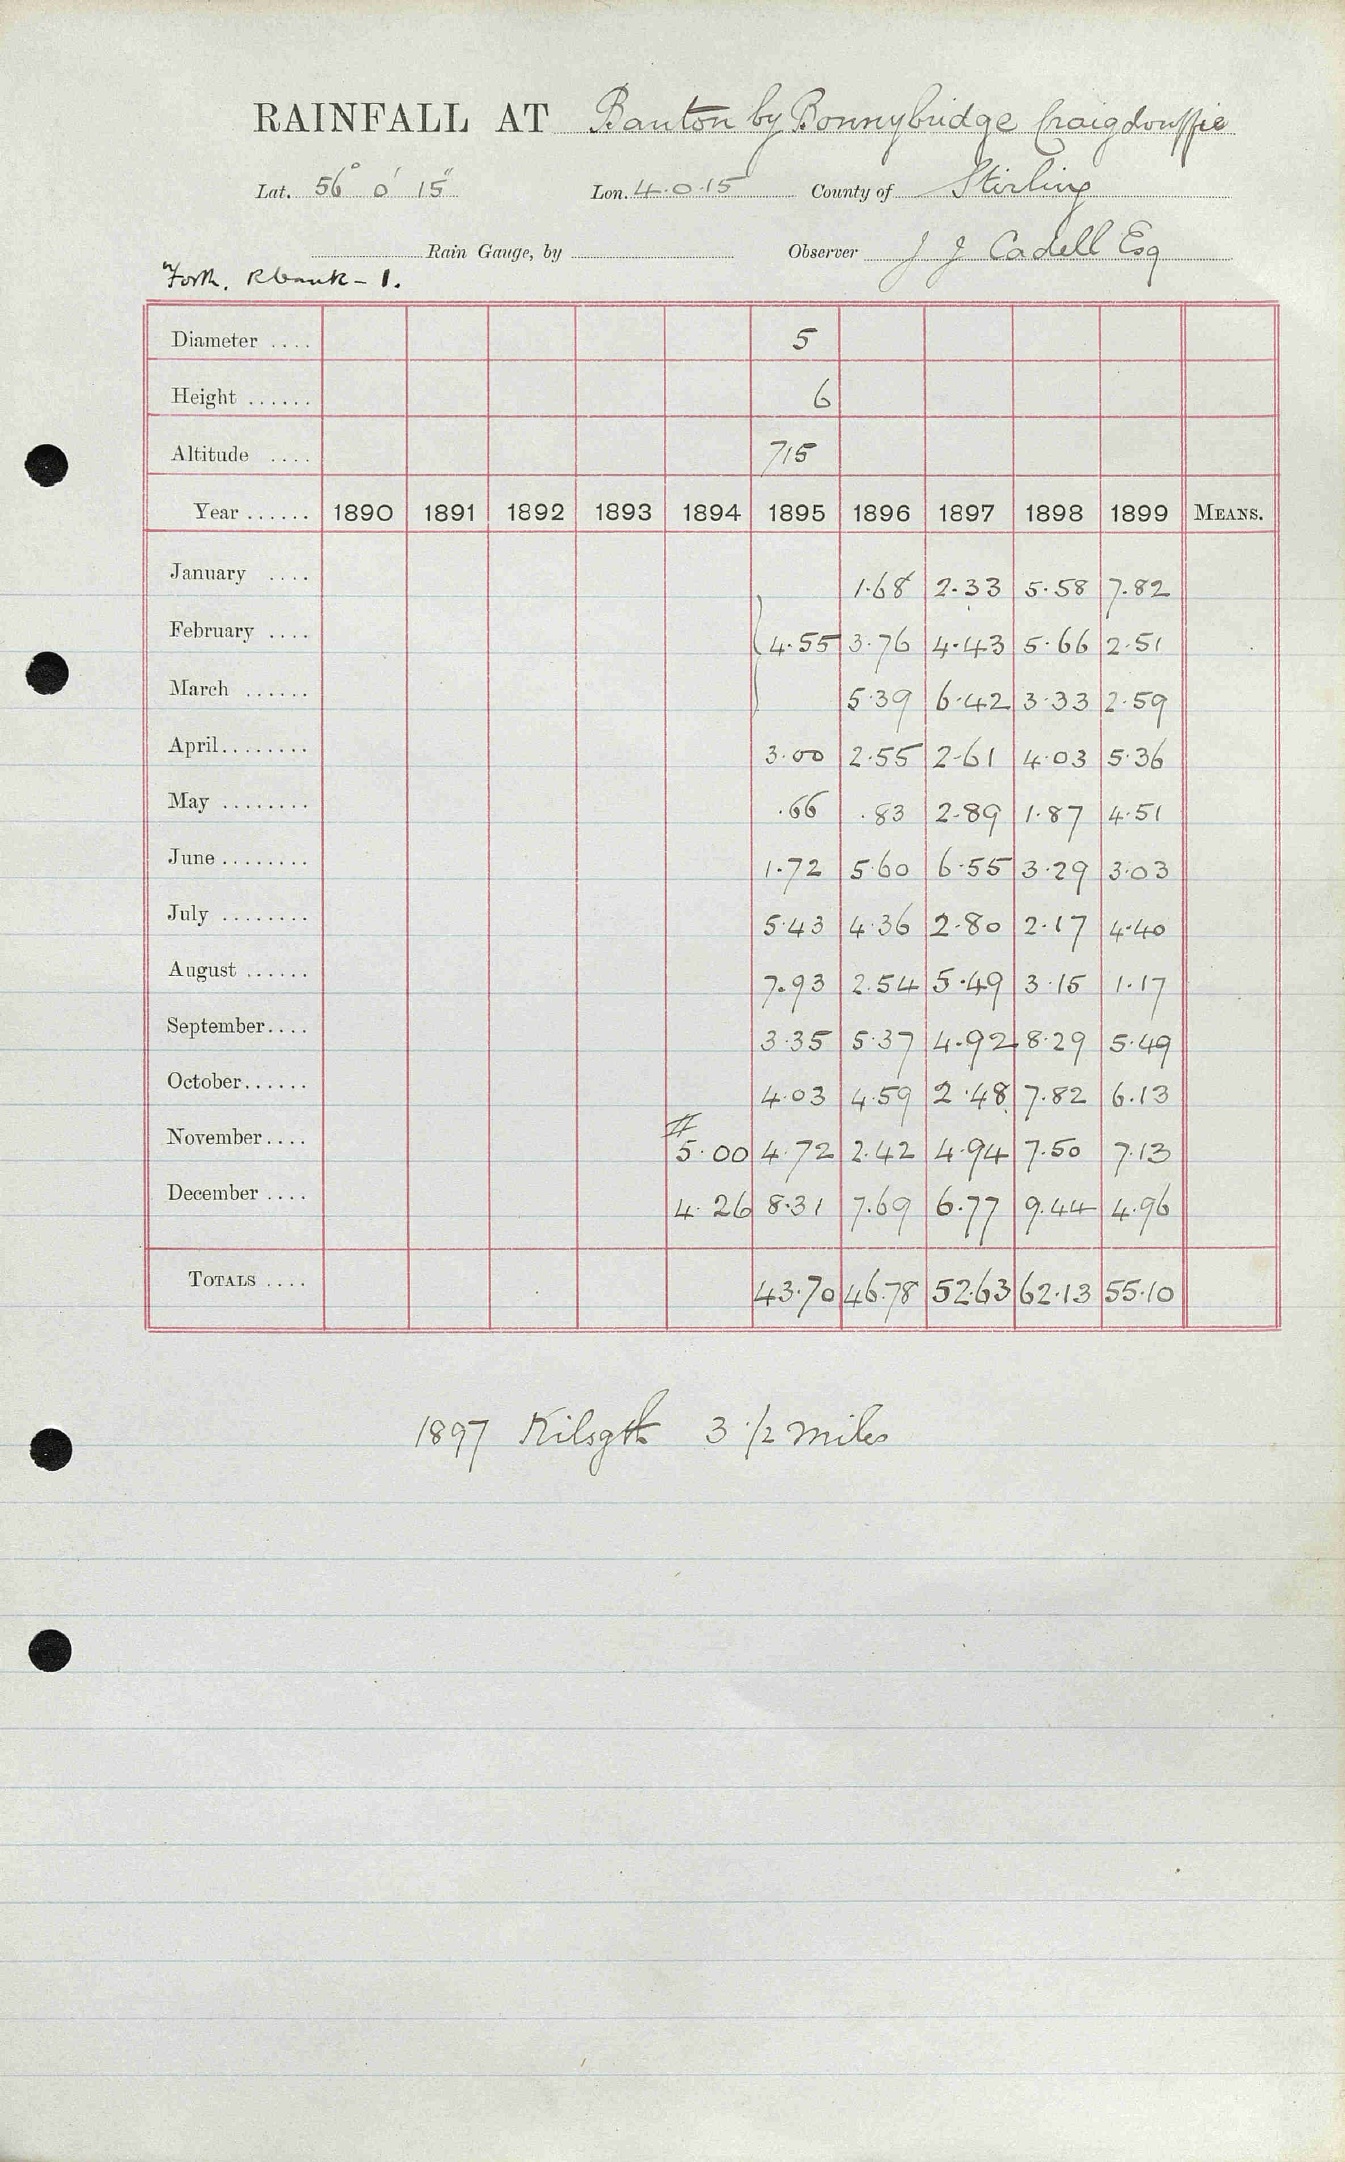 RAINFALL AT Banton by Bonnybridge Craigdouffie
Lat. 56° 0' 15" Lon. 4.0.15 County of Stirling
Rain Gauge, by Observer J J Cadell Esq
Forth. Rbank - 1.
Diameter .... 5
Height ...... 6
Altitude .... 715
Year ...... 1890 1891 1892 1893 1894 1895 1896 1897 1898 1899 MEANS.
January .... 1.68 2.33 5.58 7.82
February .... 4.55 3.76 4.43 5.66 2.51
March ...... 5.39 6.42 3.33 2.59
April........ 3.00 2.55 2.61 4.03 5.36
May ........ .66 .83 2.89 1.87 4.51
June ........ 1.72 5.60 6.55 3.29 3.03
July ........ 5.43 4.36 2.80 2.17 4.40
August ...... 7.93 2.54 5.49 3.15 1.17
September.... 3.35 5.37 4.92 8.29 5.49
October...... 4.03 4.59 2.48 7.82 6.13
November.... 5.00 4.72 2.42 4.94 7.50 7.13
December .... 4.26 8.31 7.69 6.77 9.44 4.96
TOTALS .... 43.70 46.78 52.63 62.13 55.10
1897 Kilsyth 3 1/2 miles